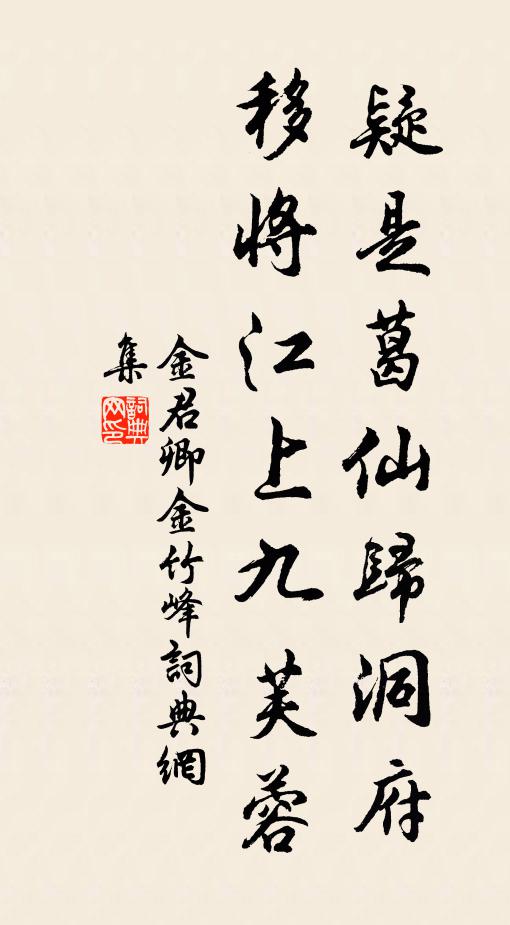 疑是葛仙歸洞府
移將江上九芙蓉
金君卿金竹峰詞典網
集
詞典
网印